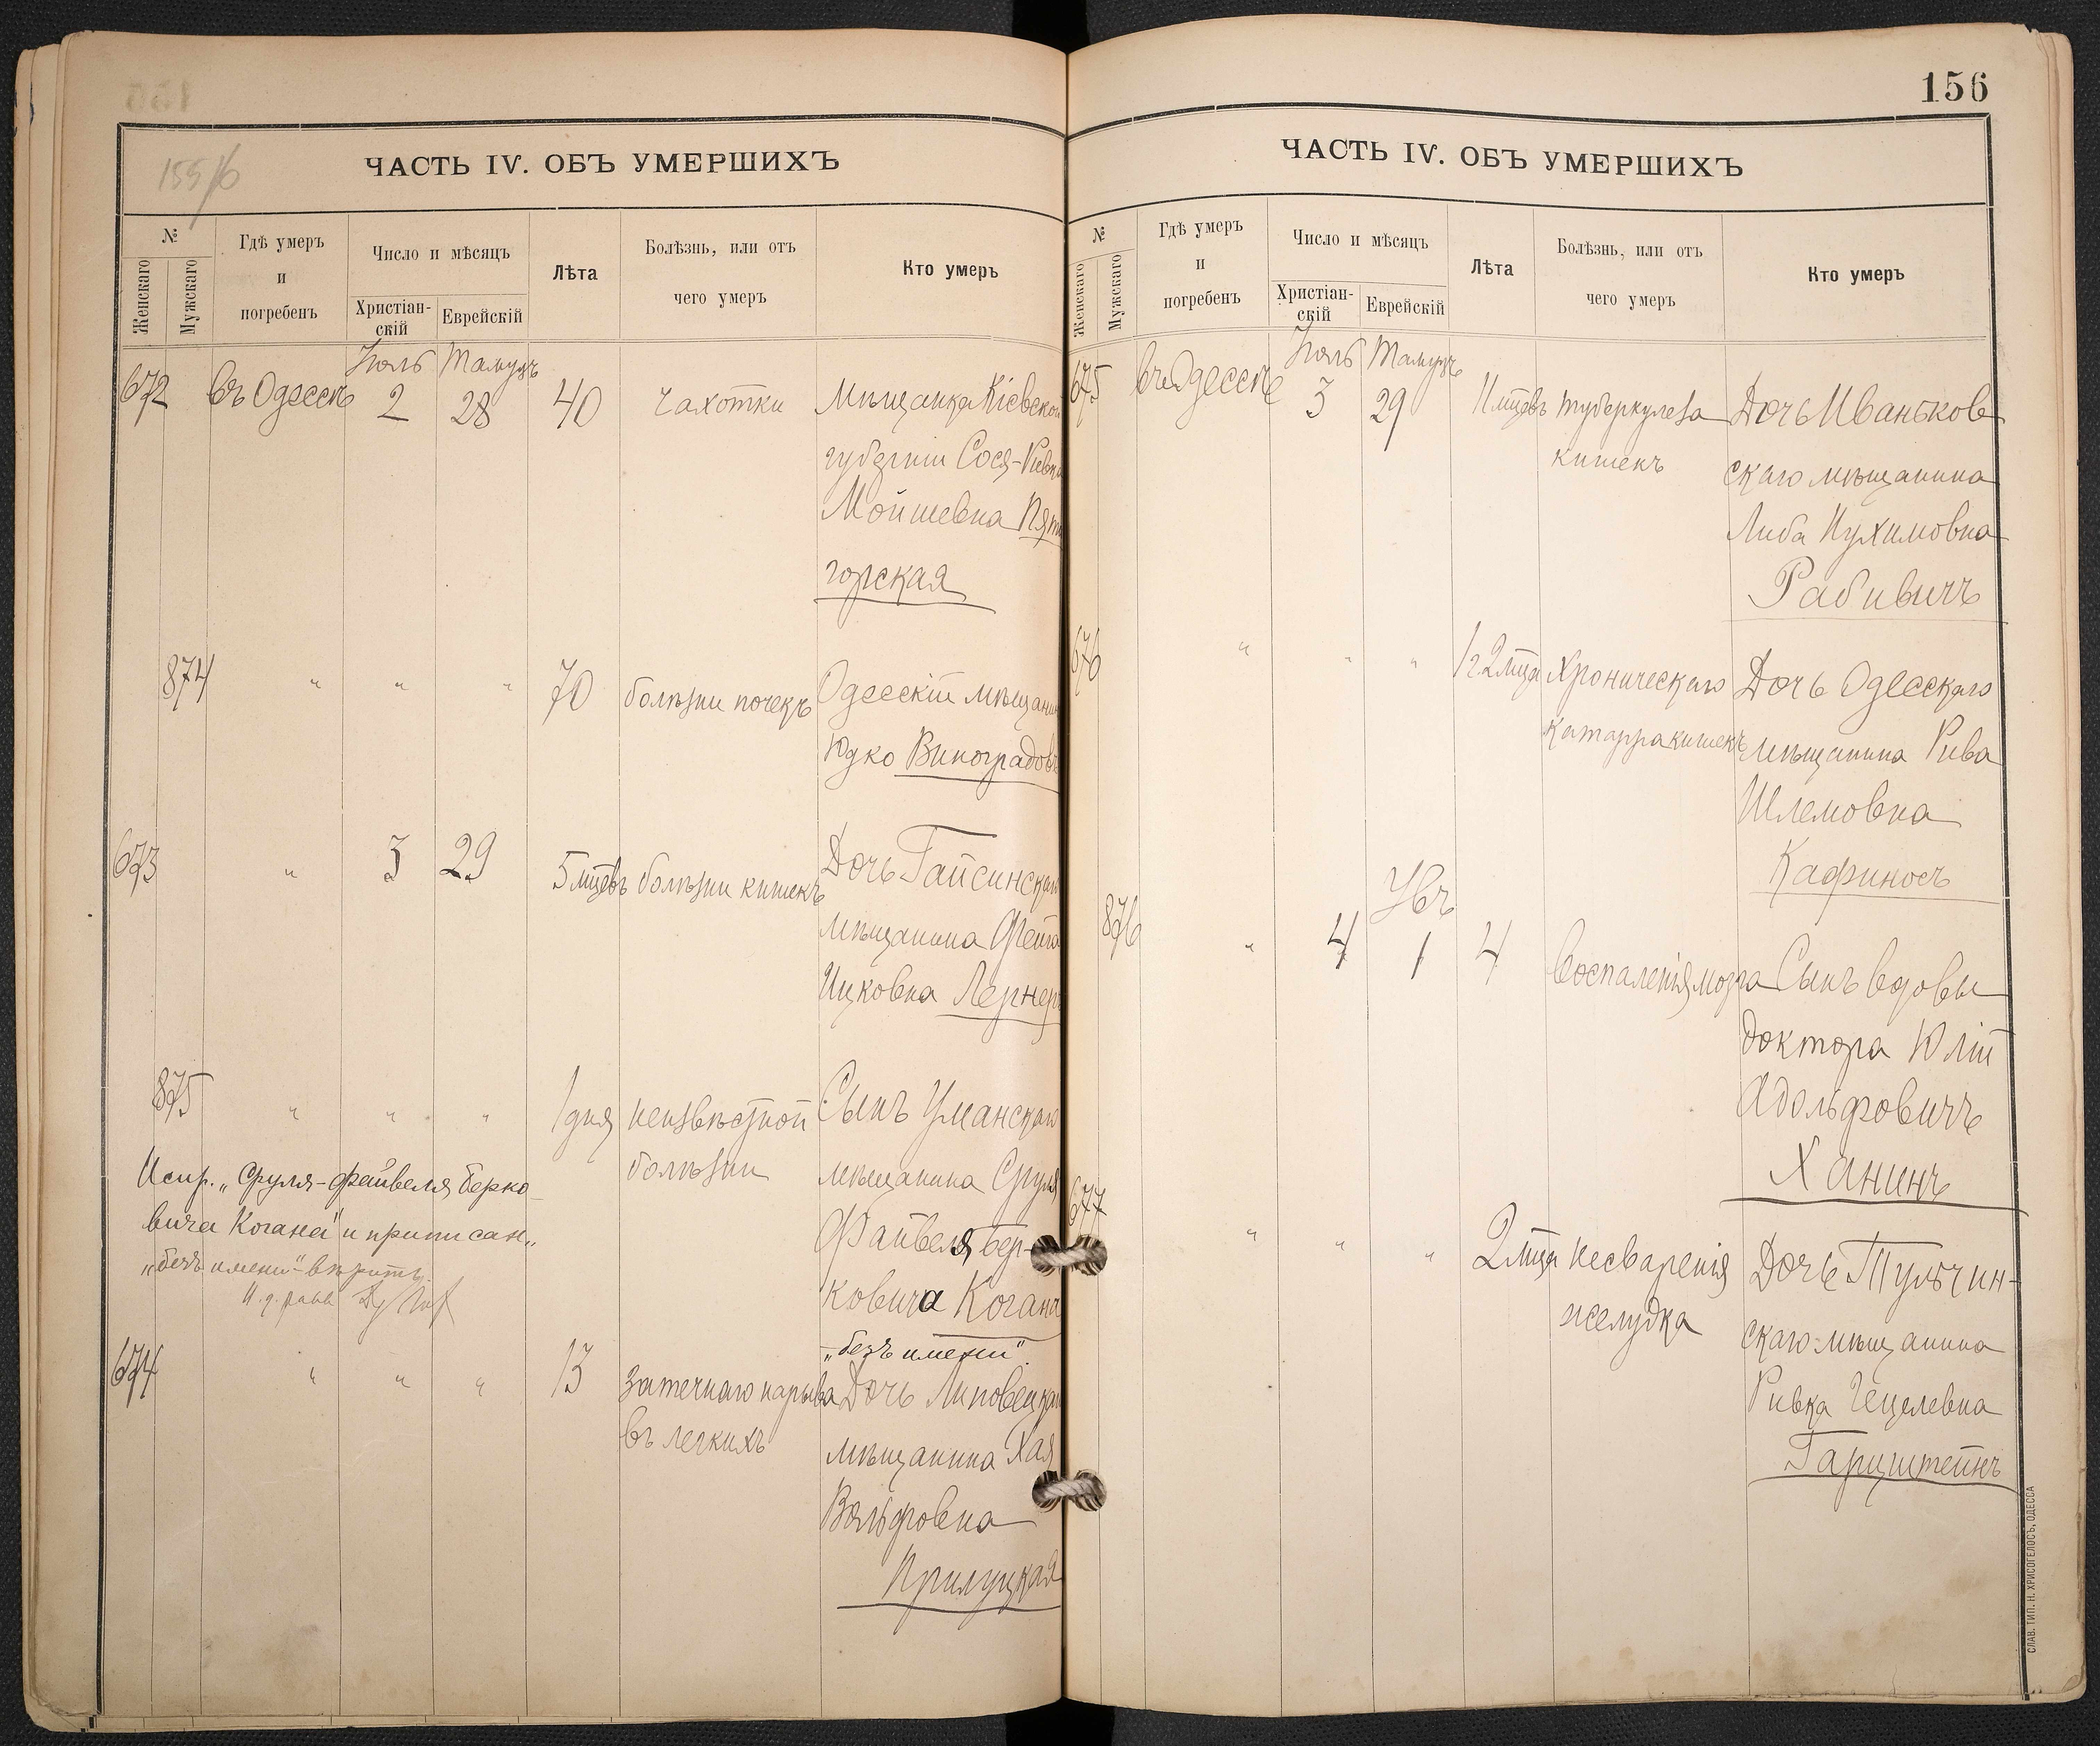 155/6
ЧАСТЬ IV. ОБЪ УМЕРШИХЪ
№
Женскаго
Мужскаго
Гдѣ умеръ
и
погребенъ
Число и мѣсяцъ
Христіан-
скій
Еврейскій
Лѣта
Болѣзнь, или отъ
чего умеръ
Кто умеръ
Іюль Тамузъ
672 въ Одессѣ 2 28 40 чахотки Мѣщанка Кіевской
губерніи Сося-Ривка
Мойшевна Пяти
горская
874 " " " 70 болѣзни почекъ Одесскій мѣщанин
Юдко Виноградовъ
673 " 3 29 5 мцевъ болѣзни кишекъ Дочь Гайсинскаго
мѣщанина Фейга
Ицковна Лернеръ
875 " " " 1 дня неизвѣстной Сынъ Уманскаго
болѣзни мѣщанина Сруля
Файвеля Бер-
ковича Когана
„безъ имени".
Испр. „Сруля-Файвеля Берко-
вича Когана" и приписан„
„безъ имени" - вѣрить.
И. д. равв
674 " " " 13 Затечнаго нарыва Дочь Липовецкаго
въ легкихъ мѣщанина Хая
Вольфовна
Прилуцкая
156
ЧАСТЬ IV. ОБЪ УМЕРШИХЪ
№
Женскаго
Мужскаго
Гдѣ умеръ
и
погребенъ
Число и мѣсяцъ
Христіан-
скій
Еврейскій
Лѣта
Болѣзнь, или отъ
чего умеръ
Кто умеръ
Іюль Тамузъ
675 въ Одессѣ 3 29 11 мцевъ туберкулеза Дочь Иваньков
кишекъ скаго мѣщанина
Либа Нухимовна
Рабивичъ
676 " " " 1 г. 2 мца хроническаго Дочь Одесскаго
катарра кишекъ мѣщанина Рива
Шлемовна
Кафиносъ
Увъ
876 " 4 1 4 Воспаленія мозга Сынъ вдовы
доктора Юлій
Адольфовичъ
Ханинъ
677 " " " 2 мца несваренія Дочь Тульчин-
желудка скаго мѣщанина
Ривка Гецелевна
Гарцштейнъ
СЛАВ. ТИП. Н. ХРИСОГЕЛОСЪ, ОДЕССА